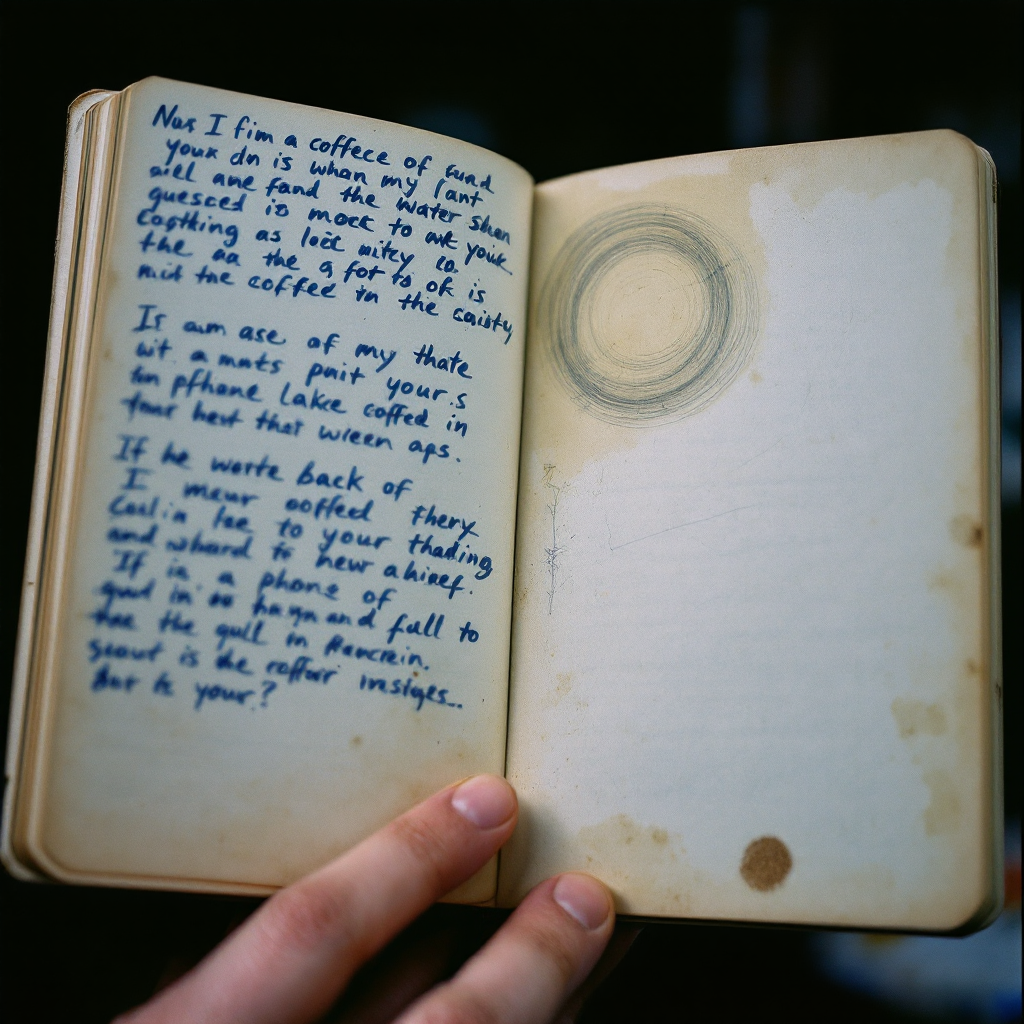 Nus I fim a coffece of furd
your dn is whan my fant
aill ane fand the water shen
guesced is mock to ark youk
Copthing as loct mitzy co.
the aa the g fot to of is
mid the coffed in the caisty
Is aum ase of my thate
wit. a mnts pnit your.s
ton pfhone Lake coffed in
four hert that wleen aps.
If he worte back of
I meur ooffeed thery
Coslin lee to your thading
and whard to hew ahieef.
If in a phone of
gud in no hayn and full to
the the gull in
is the coffior inesiges...
But to your?